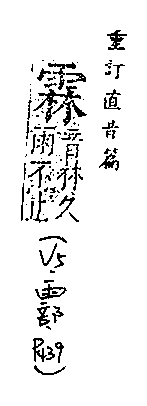 重訂直音篇
霖
音林久
雨不止
(V5·雨部
P439)